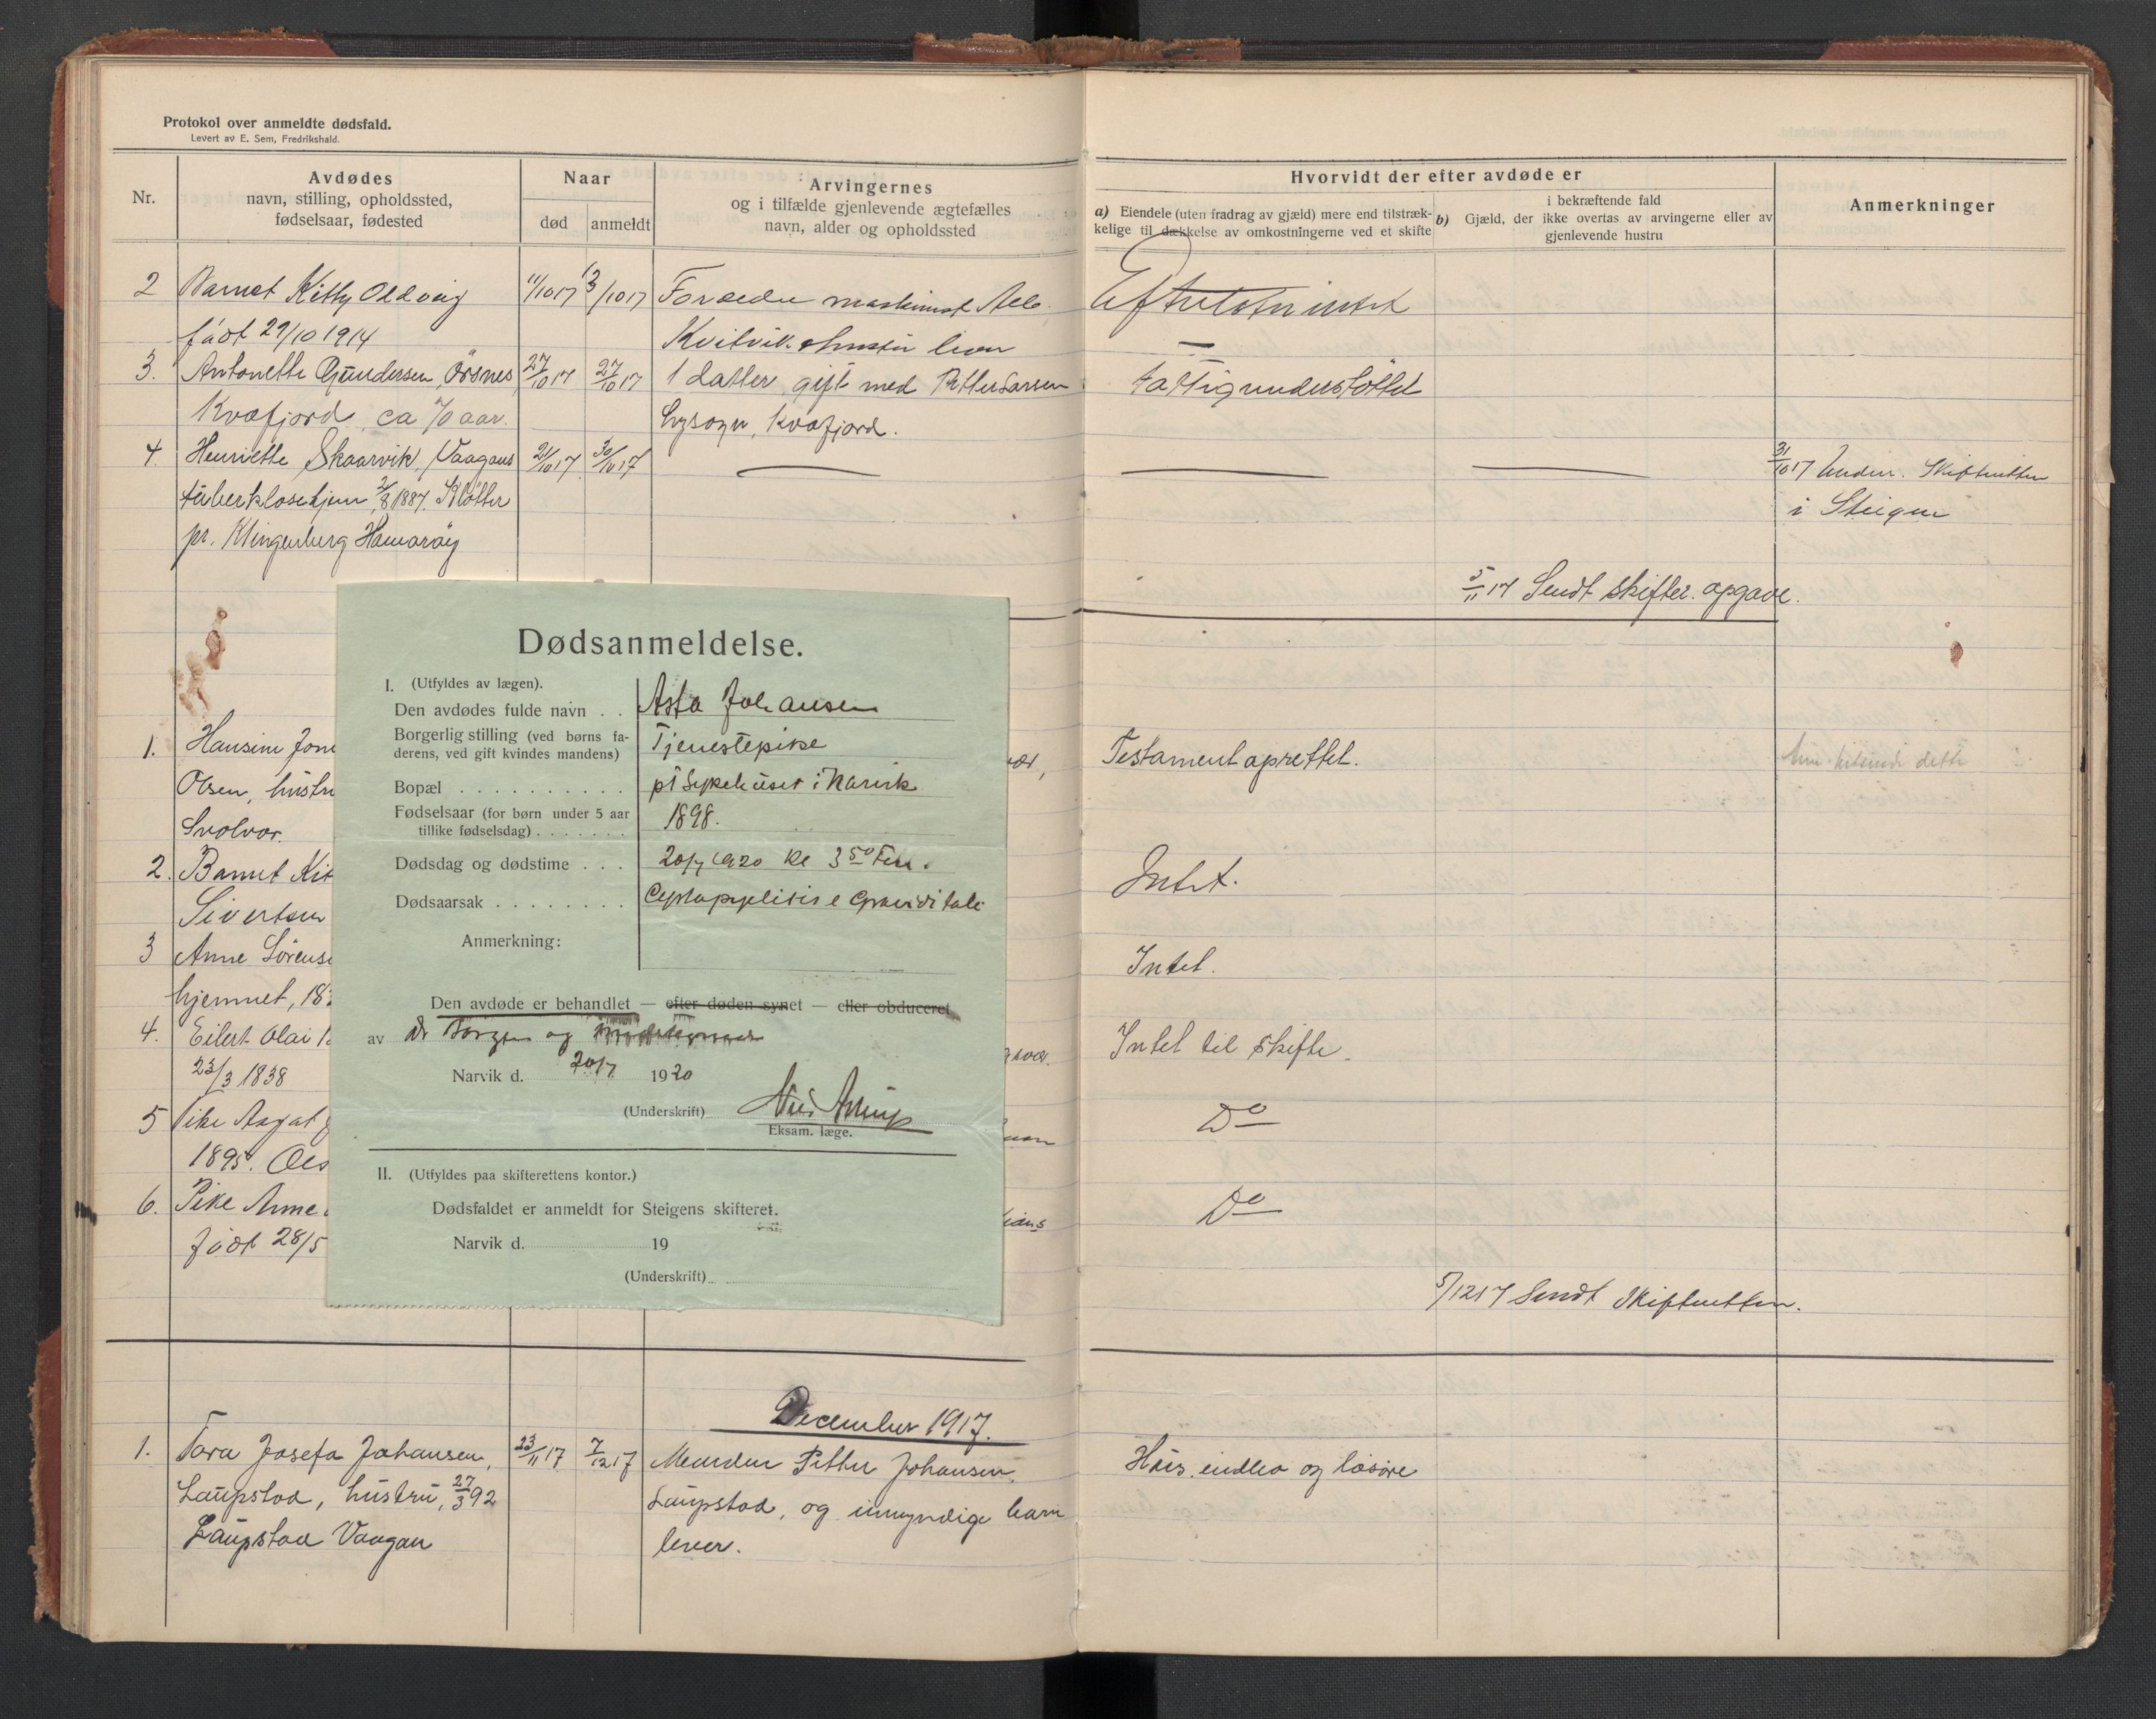 Protokol over anmeldte dødsfald.
Levert av E. Sem, Fredrikshald.
Nr.
Avdødes
navn, stilling, opholdssted,
fødselsaar, fødested
Naar
død
anmeldt
Arvingernes
og i tilfælde gjenlevende ægtefælles
navn, alder og opholdssted
Hvorvidt der efter avdøde er
a) Eiendele (uten fradrag av gjæld) mere end tilstræk-
kelige til dækkelse av omkostningerne ved et skifte
i bekræftende fald
b) Gjæld, der ikke overtas av arvingerne eller av
gjenlevende hustru
Anmerkninger
2 Barnet Kitty Oldveig 11/10 17 13/10 17 Forældre maskinist
født 29/10 1914 Kvitvik
3. Antonette Gundersen, Örsnes 27/10 17 27/10 17 1 datter, gift med Petter Larsen Fattigunderstöttet
Kvæfjord, ca 70 aar. Kvæfjord.
4. Henriette Skaarvik, Vaagans 21/10 17 30/10 17 31/10 17 Skifteretten
tuberklosehjem 1887. i Steigen
pr. Klingenberg Hamaröy
5/11 17 Sendt skifter. opgave.
1. Hansine Testament oprettet.
Olsen, hustru
Svolvær.
2. Barnet Kit Intet.
Sivertsen
3 Anne Sörens Intet.
hjemmet, 18
4. Eilert Olai Intet til skifte.
23/3 1838
5 Pike Aagot Do
1895.
6. Pike Anne Do
født 28/5
5/12 17 Sendt Skifteretten.
Dødsanmeldelse.
I. (Utfyldes av lægen).
Den avdødes fulde navn . . Asta Johansen
Borgerlig stilling (ved børns fa-
derens, ved gift kvindes mandens) Tjenestepike
Bopæl . . . . . . . . . . på Sykehuset i Narvik
Fødselsaar (for børn under 5 aar
tillike fødselsdag) . . . . . . . 1898.
Dødsdag og dødstime . . . 20/7 1920 Kl 3 50 Fm.
Dødsaarsak . . . . . . . . Cystopyelitis e Graviditate
Anmerkning:
Den avdøde er behandlet — efter døden synet — eller obduceret
av Dr Borgen og
Narvik d. 20/7 1920
(Underskrift)
Eksam. læge.
II. (Utfyldes paa skifterettens kontor.)
Dødsfaldet er anmeldt for Steigens skifteret.
Narvik d. 19
(Underskrift)
December 1917.
1. Tora Josefa Johansen, 23/11 17 7/12 17 Manden Petter Johansen, Hus, og lösöre
Laupstad, hustru, 27/3 92 Laupstad, og umyndige barn
Laupstad Vaagan lever.